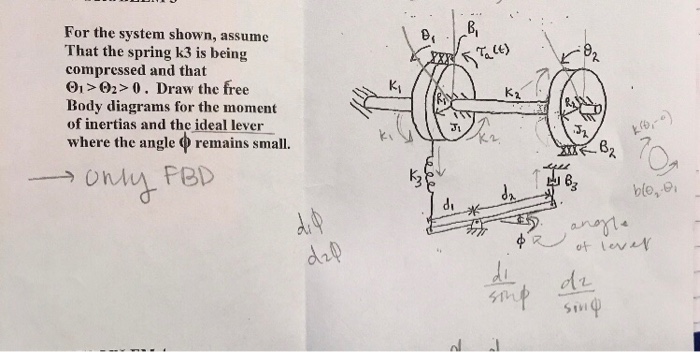 For the system shown, assume
That the spring k3 is being
compressed and that
Θ1 > Θ2 > 0. Draw the free
Body diagrams for the moment
of inertias and the ideal lever
where the angle ϕ remains small.
→ only FBD
θ1
B1
τa(t)
θ2
K1
R1
J1
K2
R2
J2
B2
K1
K2
K3
d1
d2
B3
ϕ
angle
of lever
d1ϕ
d2ϕ
d1
sinϕ
d2
sinϕ